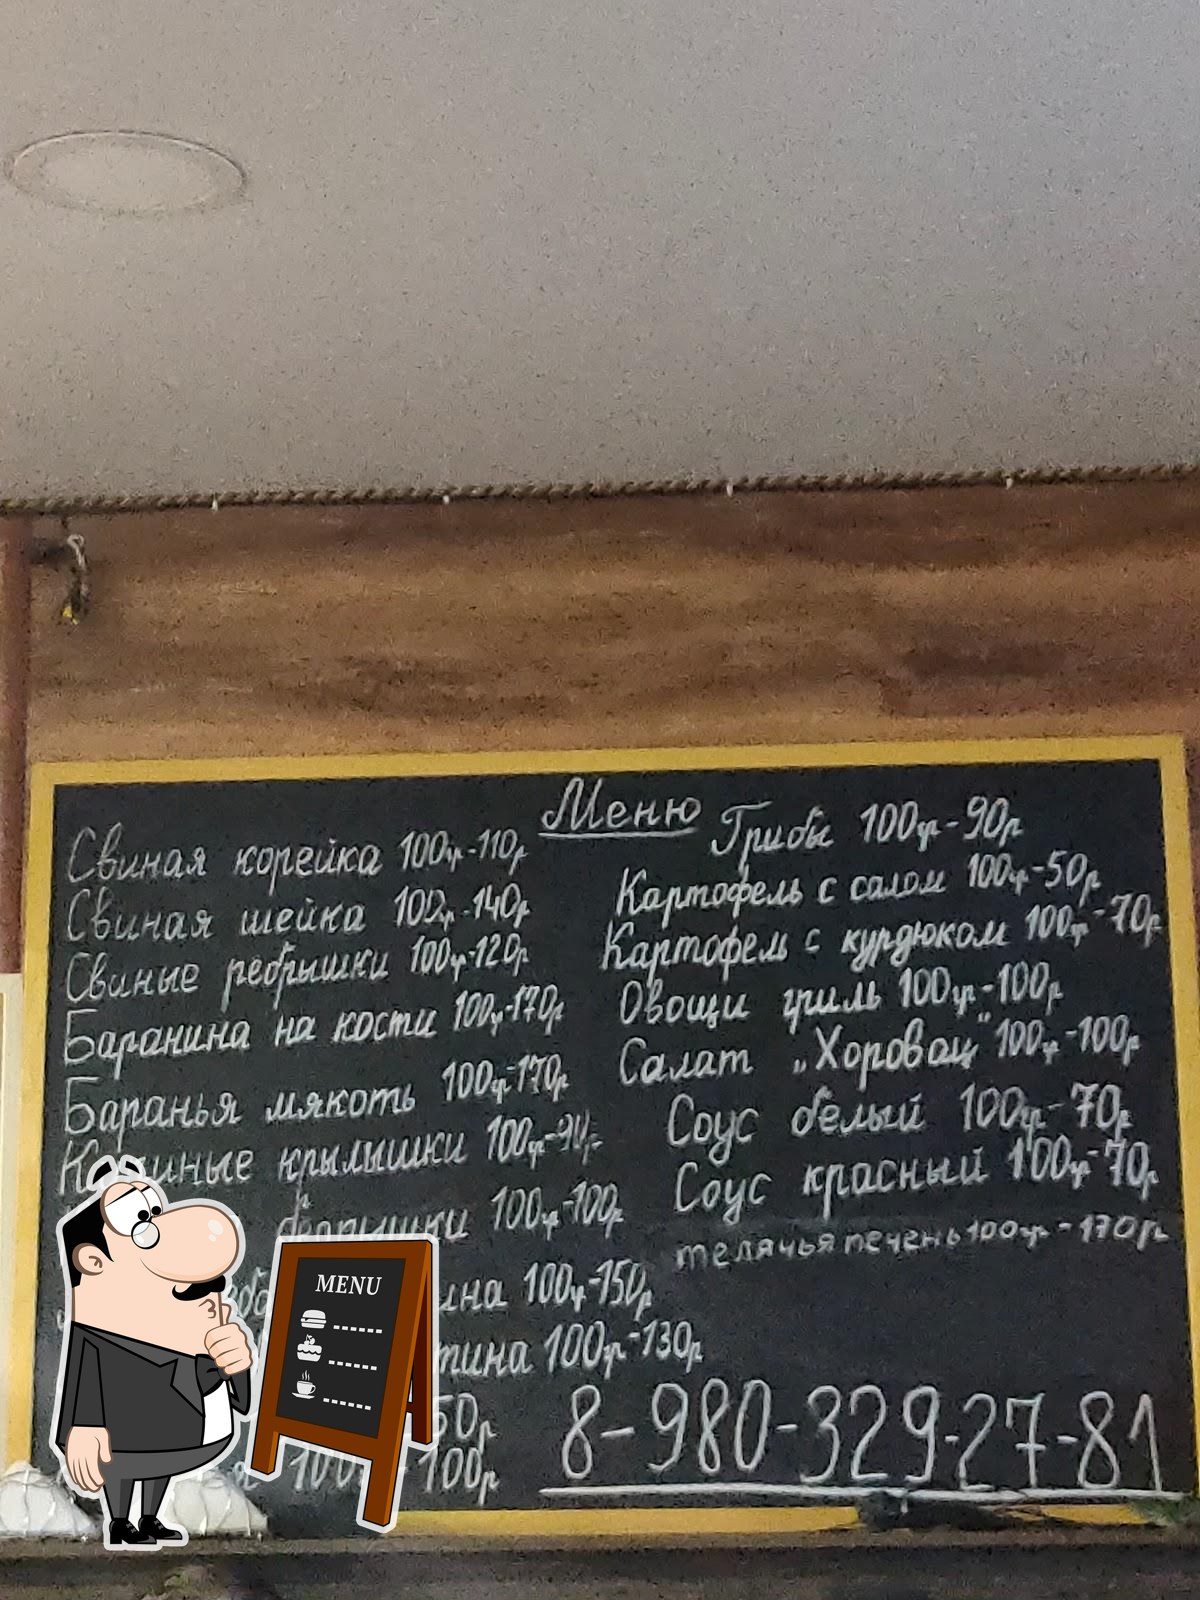 Меню
Свиная корейка 100гр-110р
Свиная шейка 100гр-140р
Свиные ребрышки 100гр-120р
Баранина на кости 100гр-170р
Баранья мякоть 100гр-170р
крылышки 100гр-90р
100гр-100р
100гр-150р
100гр-130р
100р
Грибы 100гр-90р
Картофель с салом 100гр-50р
Картофель с курдюком 100гр-70р
Овощи гриль 100гр-100р
Салат „Хоровац" 100гр-100р
Соус белый 100гр-70р
Соус красный 100гр-70р
телячья печень 100гр-170р
8-980-329-27-81
MENU